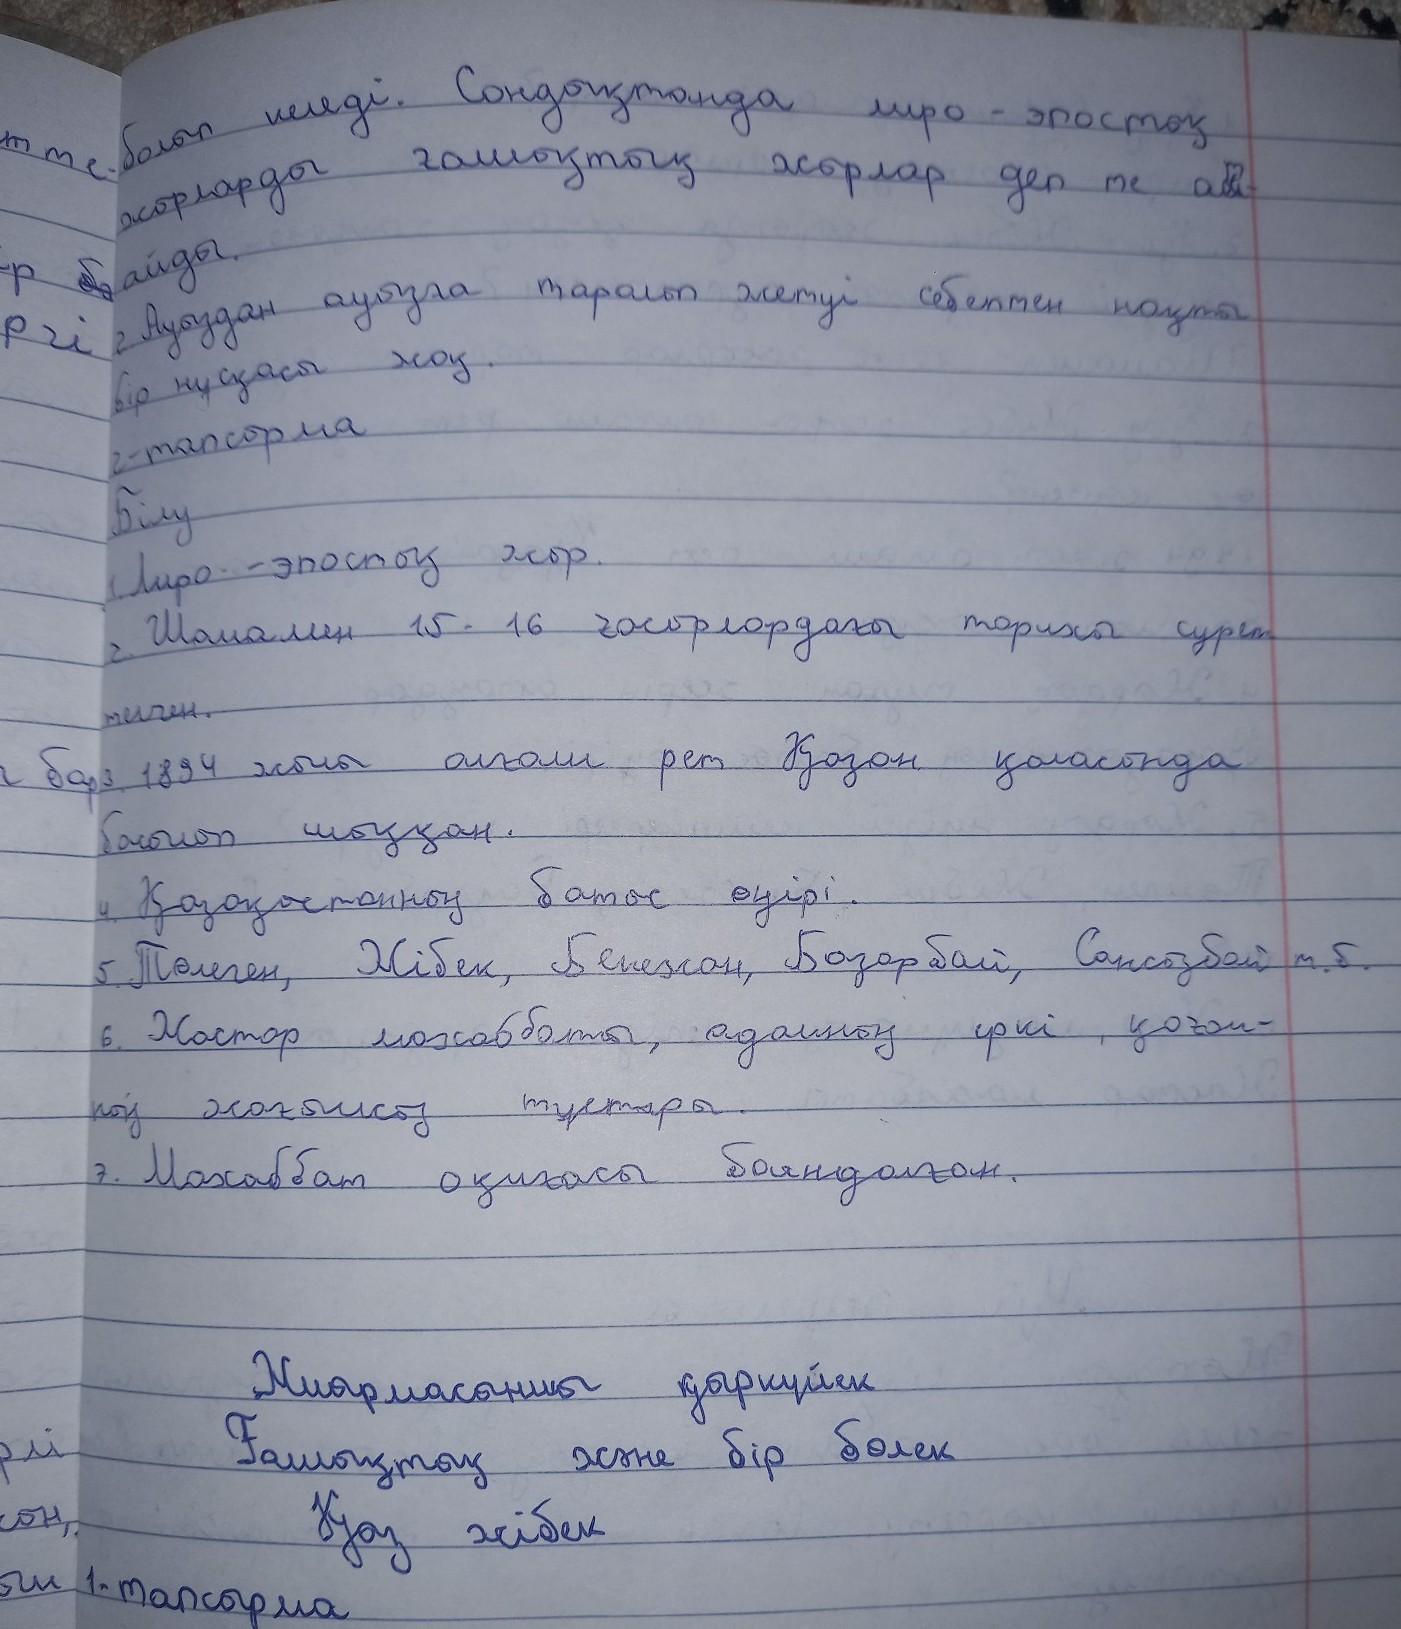 болып келеді. Сондықтанда лиро-эпостық
жырларды ғашықтық жырлар деп те ай-
айды.
2. Ауыздан ауызға таралып жетуі себептен нақты
бір нұсқасы жоқ.
2-тапсырма
Білу
1. Лиро-эпостық жыр.
2. Шамамен 15-16 ғасырлардағы тарихы сурет
телген.
3. 1894 жылы алғаш рет Қазан қаласында
басылып шыққан.
4. Қазақастанның батыс өңірі.
5. Төлеген, Жібек, Бекежан, Базарбай, Сансызбай т.б.
6. Жастар махаббаты, адамның еркі, қоғам-
ның жағымсыз тұстары.
7. Махаббат оқиғасы баяндалған.
Жиырмасыншы қыркүйек
Ғашықтық және бір бөлек
Қыз жібек
1-тапсырма